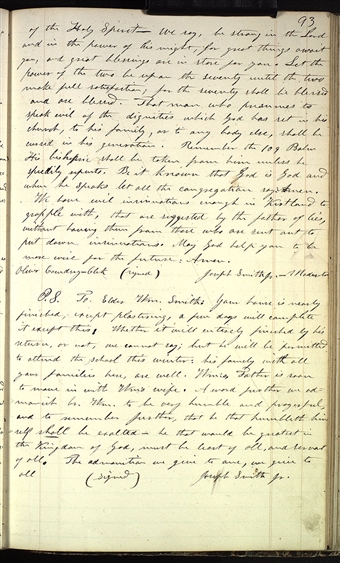 93
of the Holy Spirit— We say, be strong in the Lord
and in the power of his might, for great things await
you, and great blessings are in store for you. Let the
power of the two be upon the seventy until the two
make full satisfaction, for the seventy shall be blessed
and are blessed. That man who presumes to
speak evil of the dignities which God has set in his
church, to his family, or to any body else, shall be
cursed in his generation. Remember the 109 Psalm
His bishopric shall be taken from him unless he
speedily repents. Be it known that God is God and
when he speaks let all the congregation say Amen.
We have evil insinuations enough in Kirtland to
grapple with, that are suggested by the father of lies,
without having them from those who are sent out to
put down insinuations. May God help you to be
more wise for the future: Amen.
Oliver Cowdery, Clerk (signed) Joseph Smith jr. — Moderator
P.S. To Elder Wm. Smith: Your house is nearly
finished, except plastering, a few days will complete
it except this, Whether it will entirely finished by his
return, or not, we cannot say; but he will be permitted
to attend the school this winter: his family with all
your families here, are well. Wms Father is soon
to move in with Wms wife. A word further we ad-
monish br. Wm. to be very humble and prayerful,
and to remember further, that he that humbleth him
self shall be exalted— he that would be greatest in
the Kingdom of God, must be least of all, and servant
of all. The admonition we give to one, we give to
all (signed) Joseph Smith jr.